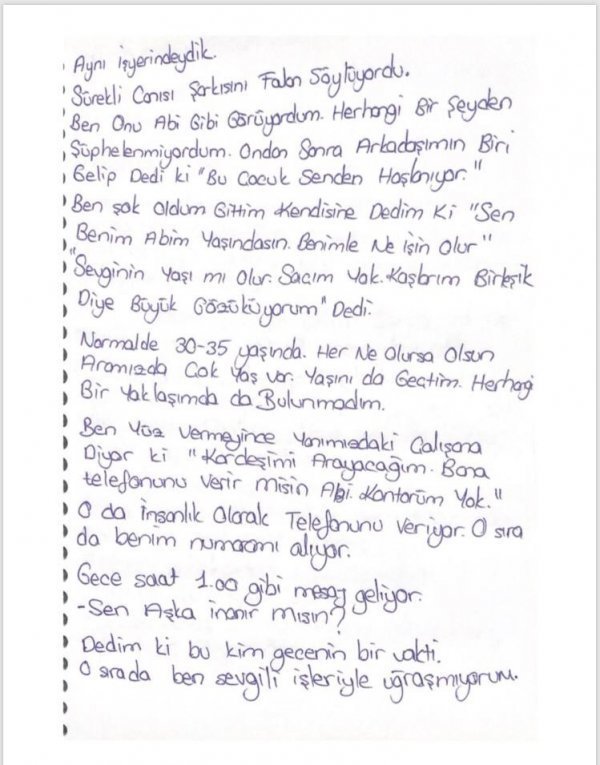 Aynı işyerindeydik.
Sürekli Canısı Şarkısını Falan Söylüyordu.
Ben Onu Abi Gibi Görüyordum. Herhangi Bir Şeyden
Şüphelenmiyordum. Ondan Sonra Arkadaşımın Biri
Gelip Dedi ki "Bu Çocuk Senden Hoşlanıyor."
Ben Şok Oldum Gittim Kendisine Dedim Ki "Sen
Benim Abim Yaşındasın. Benimle Ne işin Olur"
"Sevginin Yaşı mı Olur. Saçım Yok. Kaşlarım Birleşik
Diye Büyük Gözüküyorum" Dedi.
Normalde 30-35 yaşında. Her Ne Olursa Olsun
Aramızda Çok Yaş var. Yaşını da Geçtim. Herhagi
Bir Yaklaşımda da Bulunmadım.
Ben Yüz Vermeyince Yanımızdaki Çalışana
Diyor ki "Kardeşimi Arayacağım. Bana
telefonunu Verir misin Abi. Kontörüm Yok."
O da İnsanlık Olarak Telefonunu Veriyor. O sıra
da benim numaramı alıyor.
Gece saat 1.00 gibi mesaj geliyor.
-Sen Aşka inanır mısın?
Dedim ki bu kim gecenin bir vakti.
O sırada ben sevgili işleriyle uğraşmıyorum.